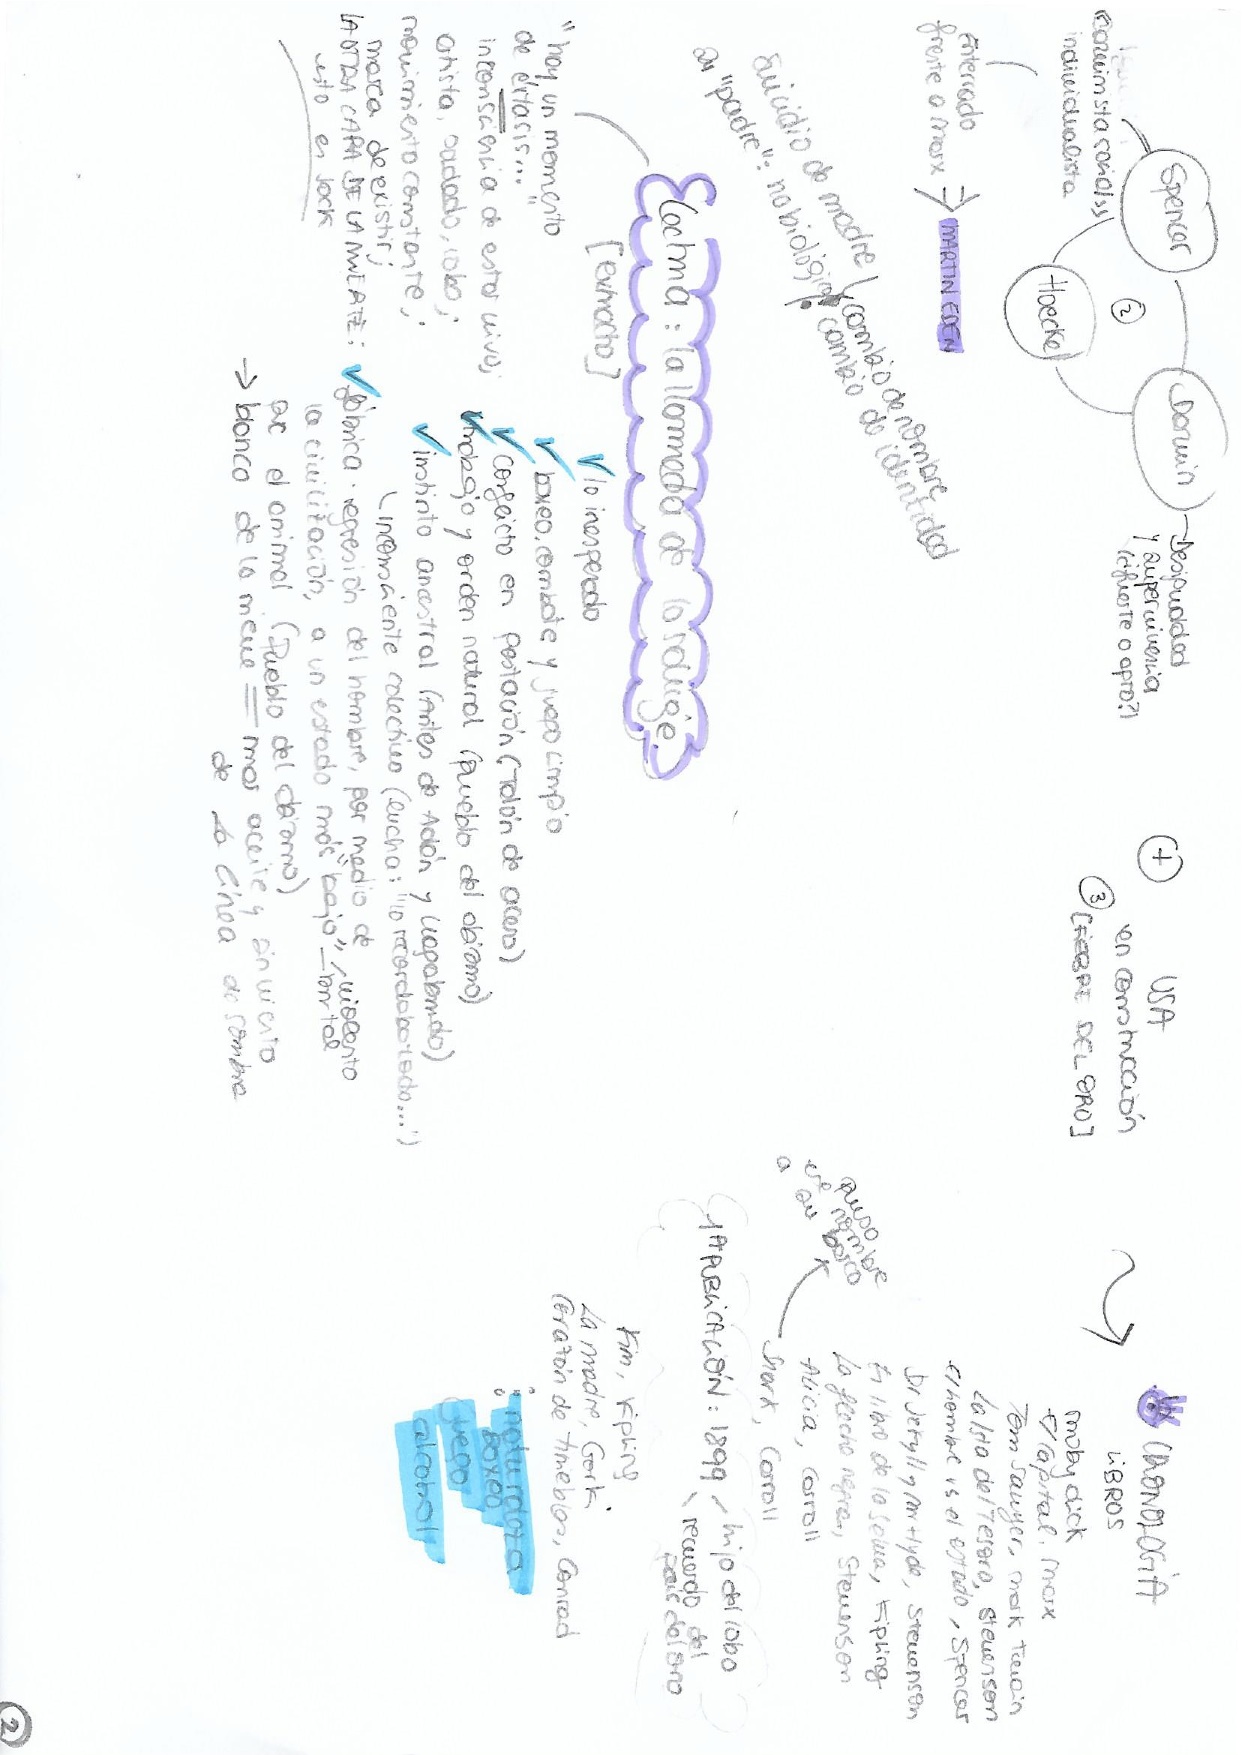 Spencer
Darwin
Haeckel
2
individualista
→ Desigualdad
y supervivencia
(¿fuerte o apto?)
Enterrado
frente a Marx
→ MARTIN EDEN
Suicidio de madre / cambio de nombre
"padre": no biológico: cambio de identidad
+
USA
en construcción
3 [FIEBRE DEL ORO]
CRONOLOGÍA
LIBROS
Moby dick
El Capital, Marx
Tom Sawyer, Mark Twain
La Isla del Tesoro, Stevenson
El hombre vs el estado, Spencer
Dr Jekyll y Mr Hyde, Stevenson
El libro de la selva, Kipling
La flecha negra, Stevenson
Alicia, Carroll
Snark, Carroll
puso
este nombre
a su barco
1ª PUBLICACIÓN: 1899 / hijo del lobo
recuerdo del
país del oro
Kim, Kipling
La madre, Gorki
Corazón de tinieblas, Conrad
naturaleza
boxeo
juego
alcohol
: la llamada de lo salvaje
[extracto]
"hay un momento
de éxtasis..."
inconsciencia de estar vivo;
artista, soldado, lobo;
movimiento constante,
marca de existir;
LA OTRA CARA DE LA MUERTE:
esto es Jack
✓ lo inesperado
✓ boxeo, combate y juego limpio
✓ conflicto en (Talón de acero)
✓ trabajo y orden natural (Pueblo del abismo)
✓ instinto ancestral (Antes de Adán y vagabundo)
inconsciente colectivo (lucha: "lo recordaba todo...")
✓ fábrica: regresión del hombre, por medio de
la civilización, a un estado más "bajo" / violento
que el animal (Pueblo del abismo)
→ blanco de la nieve = mar aceite y sin viento
de La línea de sombra
2